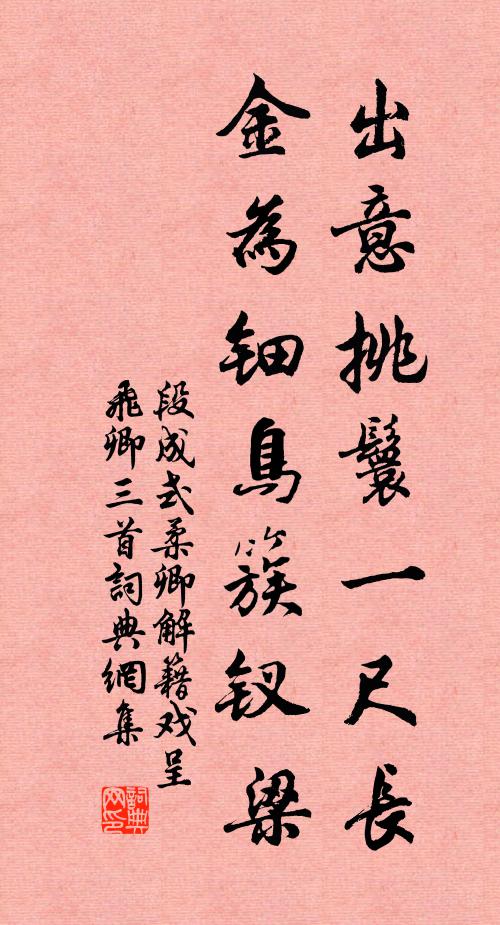 出意挑鬟一尺長
金為鈿鳥簇钗梁
段成式柔卿解籍戏呈
飛卿三首詞典網集
詞典网印